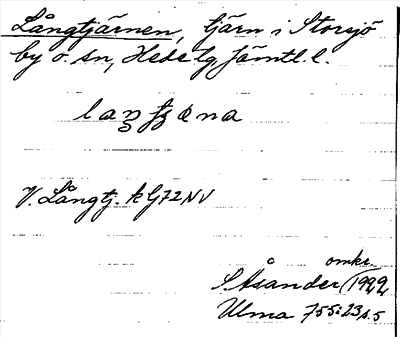 Långtjärnen, tjärn i Storsjö
by o. sn, Hede tg Jämtl. l.
V. Långtj. k G72NV
omkr.
S Åsander (1922
Ulma 755:23 s. 5